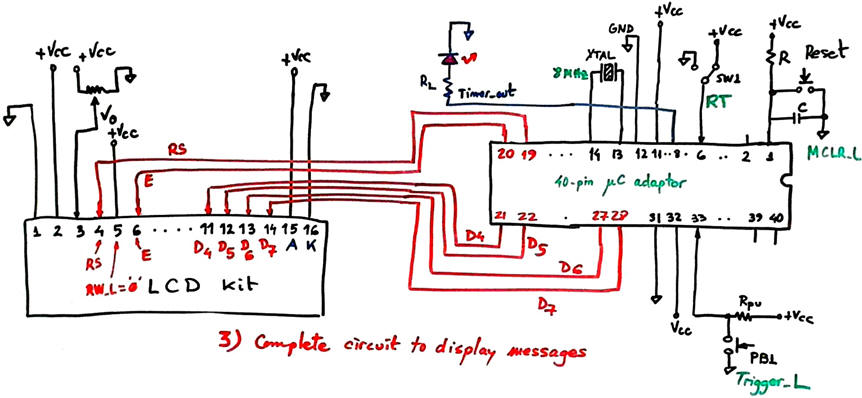 +Vcc +Vcc +Vcc GND +Vcc +Vcc +Vcc
XTAL R Reset
8MHz SW1
RL Timer_out RT C
Vo
+Vcc
RS 20 19 ... 14 13 12 11 .. 8 .. 6 .. 2 1 MCLR_L
E 40-pin µC adaptor
21 22 . 27 28 31 32 33 .. 39 40
1 2 3 4 5 6 .... 11 12 13 14 15 16
D4 D5 D6 D7 A K
D4 D5
RS E
D6
RW_L="0" LCD kit
D7
Rpu
Vcc +Vcc
3) Complete circuit to display messages
PB1
Trigger_L